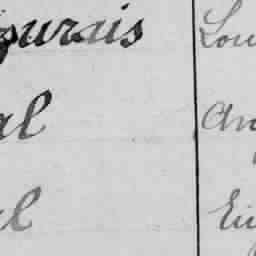 purais Lou
al An
al Eu